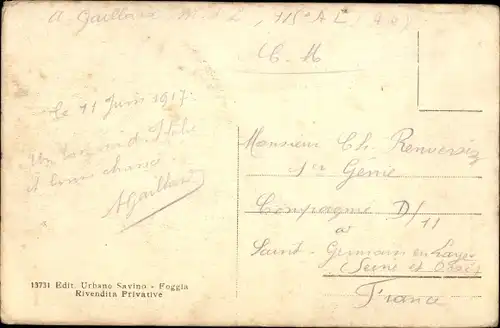 A Gaillard 115e A L
C. M
Le 11 Juin 1917.
Un bonjour d'Italie
et bonne chance.
AGaillard
Monsieur Ch. Renversez
1er Génie
Compagnie D/11
à
Saint-Germain en Laye
(Seine et Oise)
France
13731 Edit. Urbano Savino - Foggia
Rivendita Privative